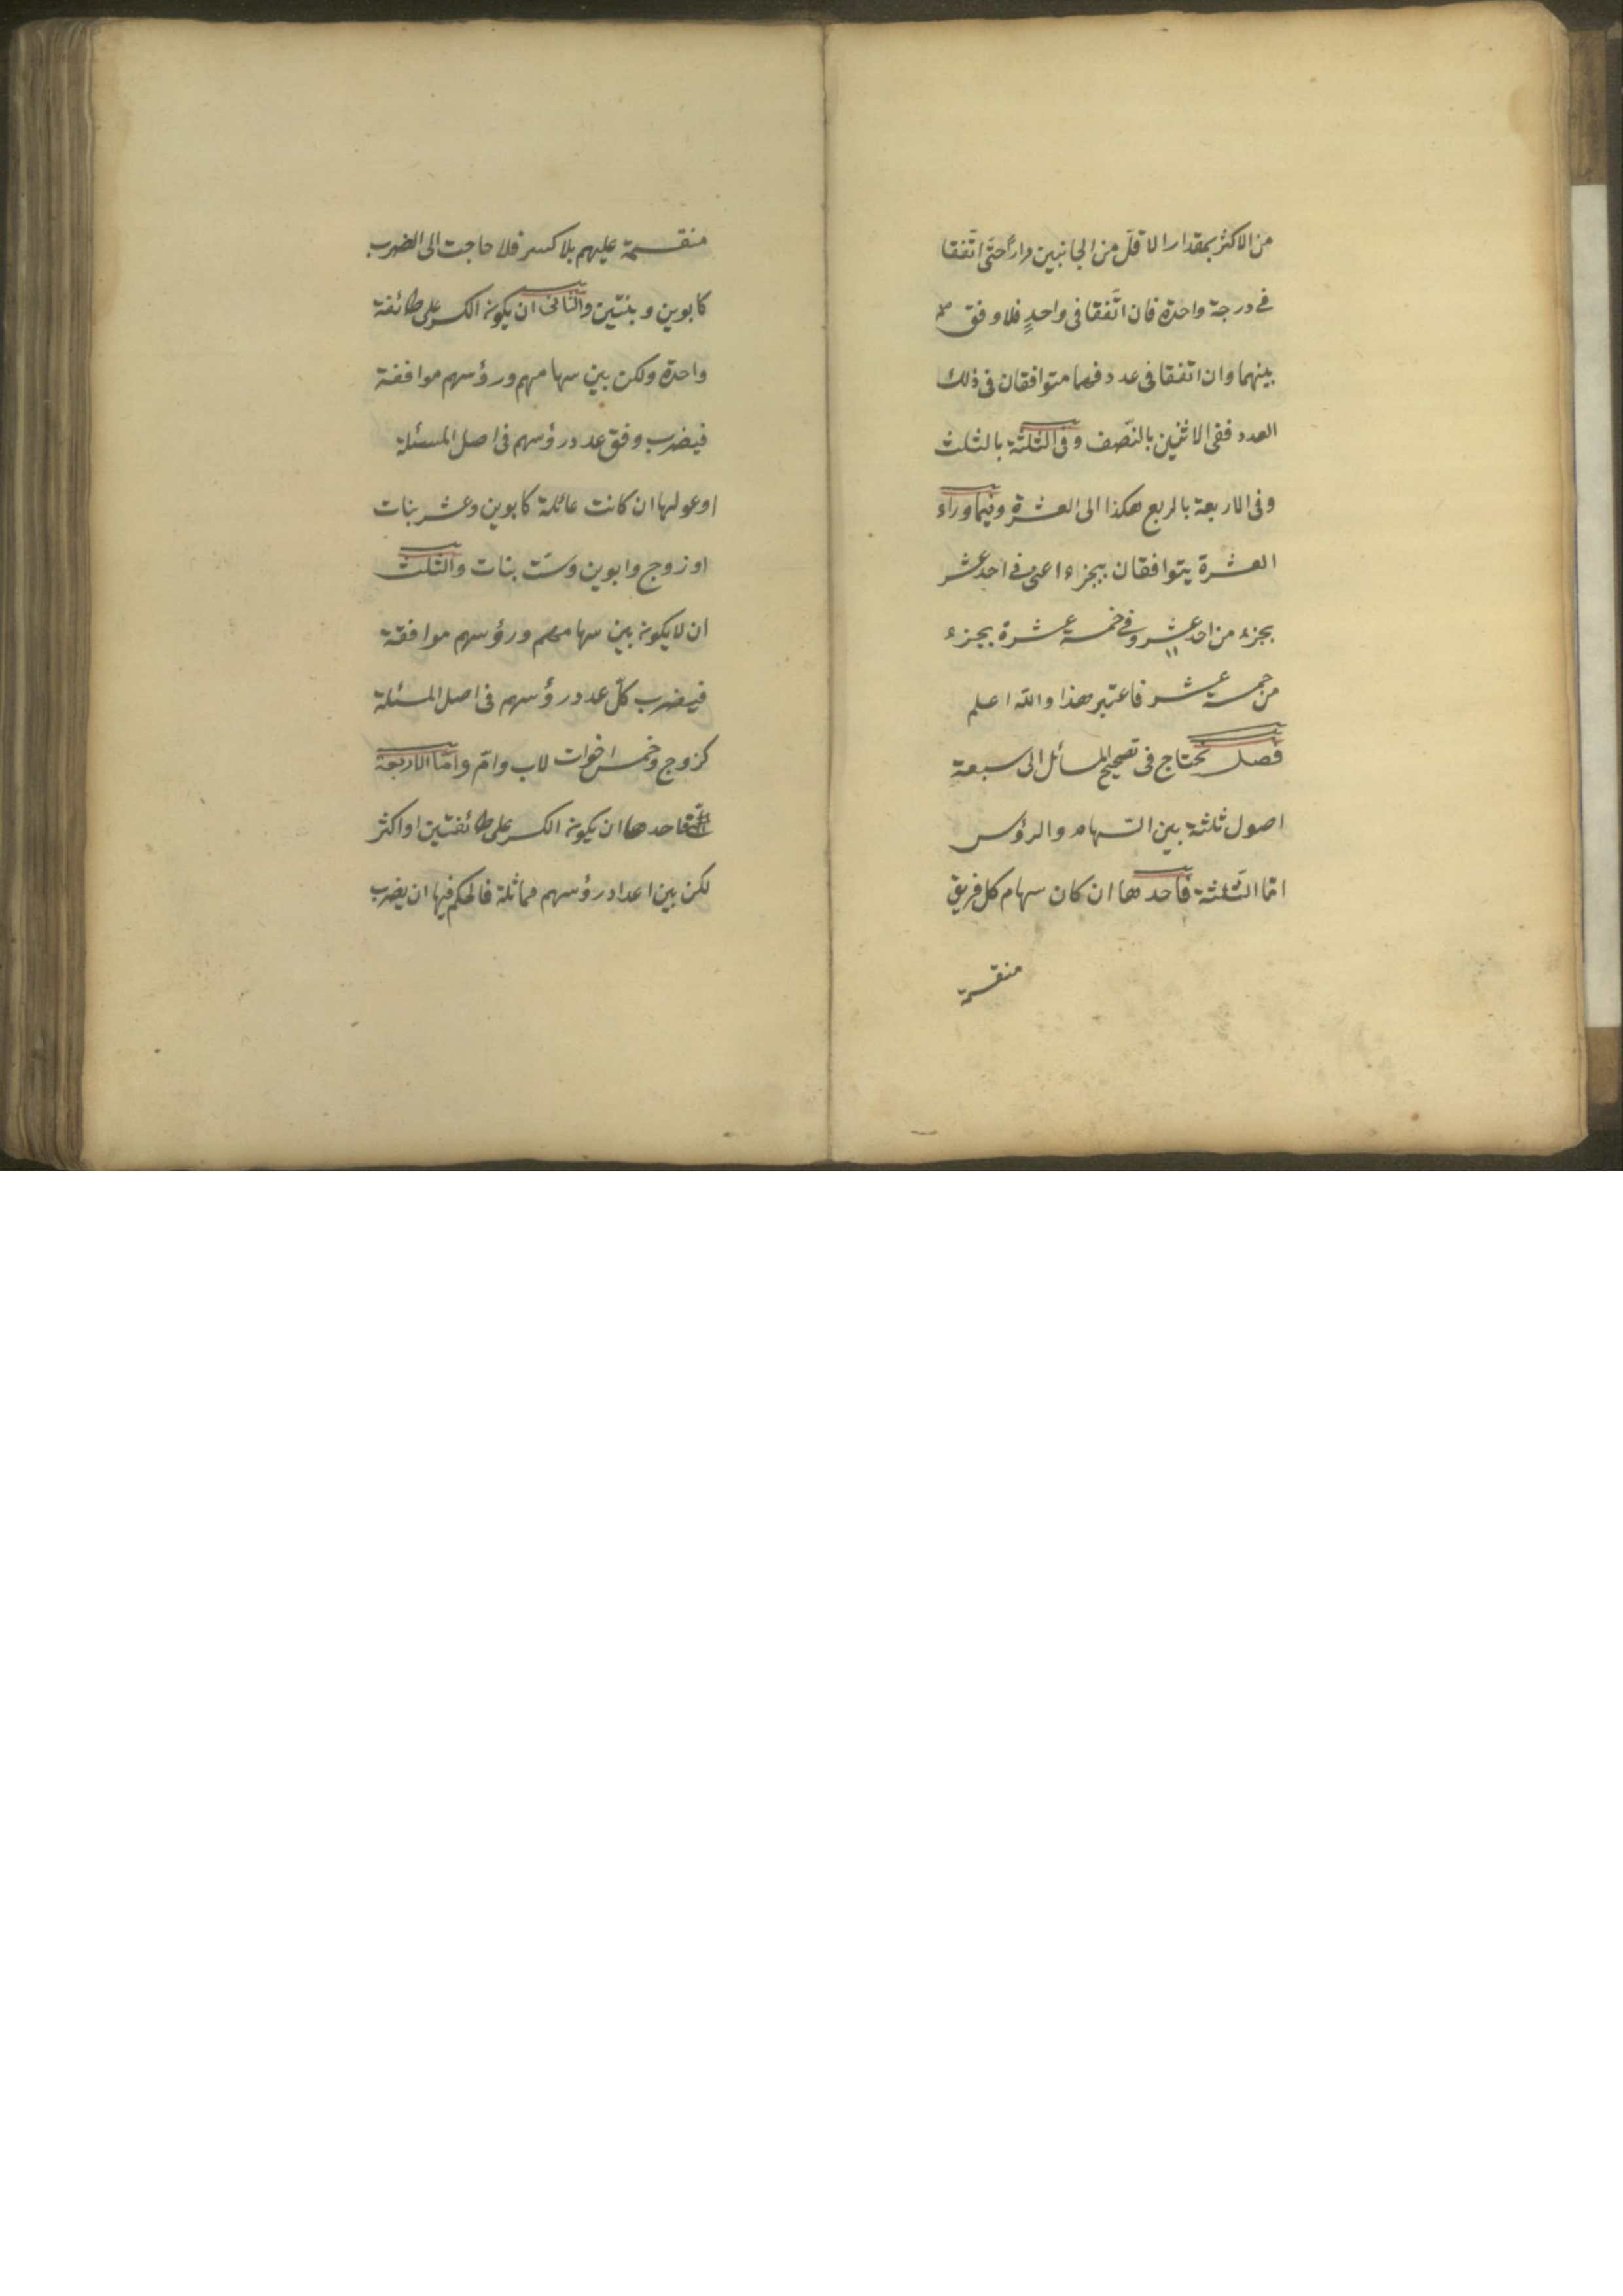 من الاكثر بمقدار الاقلّ من الجانبين مراراً حتّى اتّفقا
فى درجة واحدة فان اتّفقا فى واحدٍ فلا وفق
بينهما وان اتفقا فى عدد فهما متوافقان فى ذلك
العدد ففى الاثنين بالنّصف وفى الثلثة بالثلث
وفى الاربعة بالربع هكذا الى العشرة وفيما وراء
العشرة يتوافقان بجزء اعنى فى احد عشر
بجزء من احد عشر وفى خمسة عشرة بجزء
من خمسة عشر فاعتبر هذا والله اعلم
فصل يحتاج فى تصحيح المسائل الى سبعة
اصول ثلثة بين السّهام والرؤس
امّا الثّلثة فاحدها ان كان سهام كل فريق
منقسمة
منقسمة عليهم بلا كسر فلا حاجت الى الضرب
كابوين وبنتين والثانى ان يكون الكسر على طائفة
واحدة ولكن بين سهامهم ورؤسهم موافقة
فيضرب وفق عدد رؤسهم فى اصل المسئلة
او عولها ان كانت عائلة كابوين وعشر بنات
او زوج وابوين وستّ بنات والثلث
ان لا يكون بين سهامهم ورؤسهم موافقة
فيضرب كلّ عدد رؤسهم فى اصل المسئلة
كزوج وخمس اخوات لاب وامّ وامّا الاربعة
فاحدها ان يكون الكسر على طائفتين او اكثر
لكن بين اعداد رؤسهم مماثلة فالحكم فيها ان يضرب